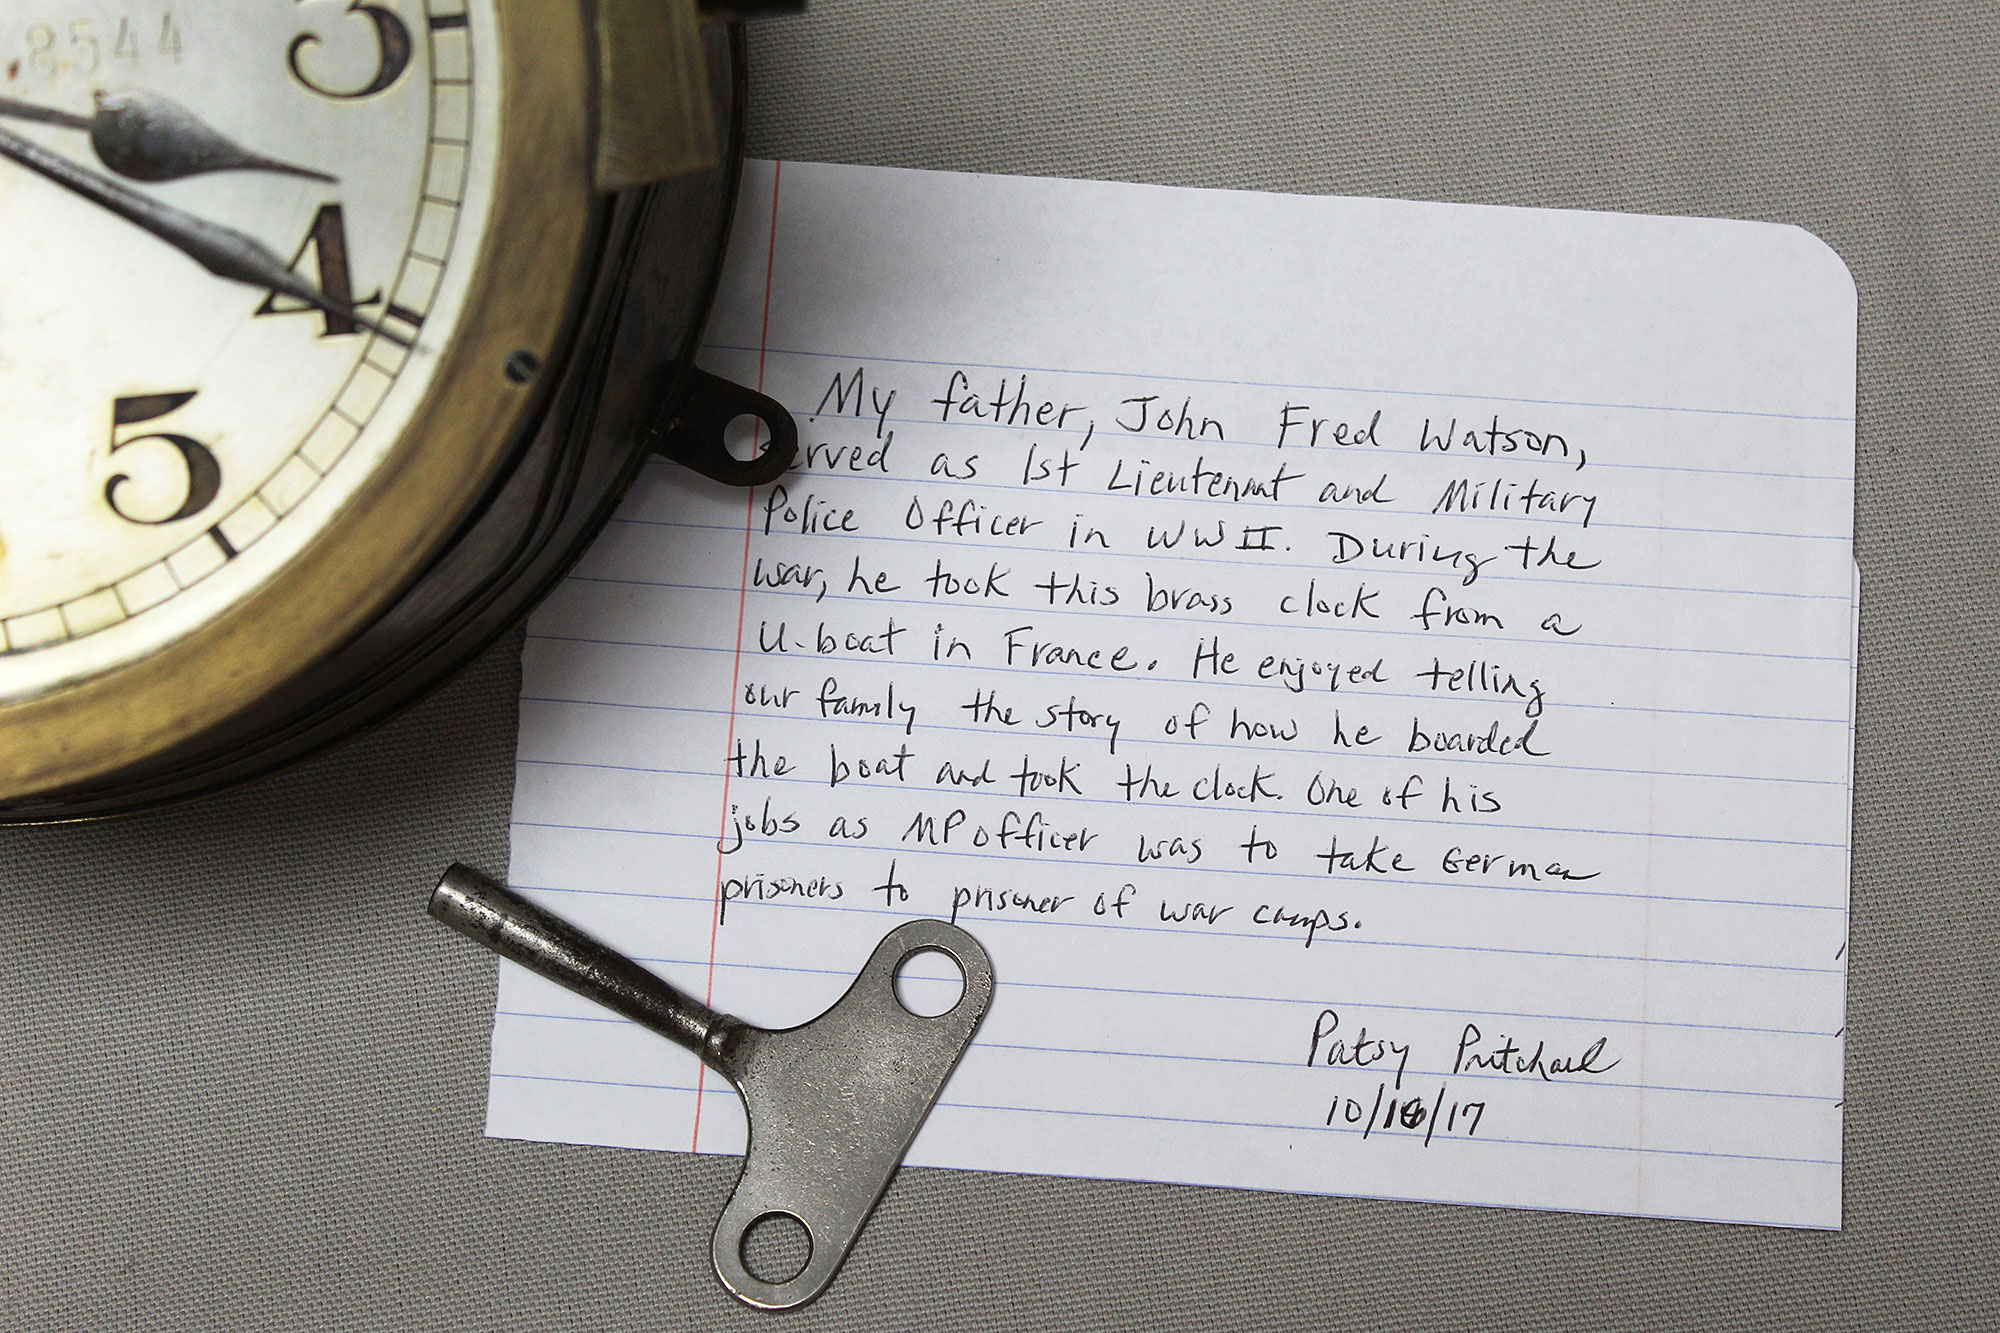 8544
3
4
5
My father, John Fred Watson,
served as 1st Lieutennt and Military
Police Officer in WWII. During the
war, he took this brass clock from a
U-boat in France. He enjoyed telling
our family the story of how he boarded
the boat and took the clock. One of his
jobs as MP officer was to take German
prisoners to prisoner of war camps.
Patsy Pritchard
10/10/17